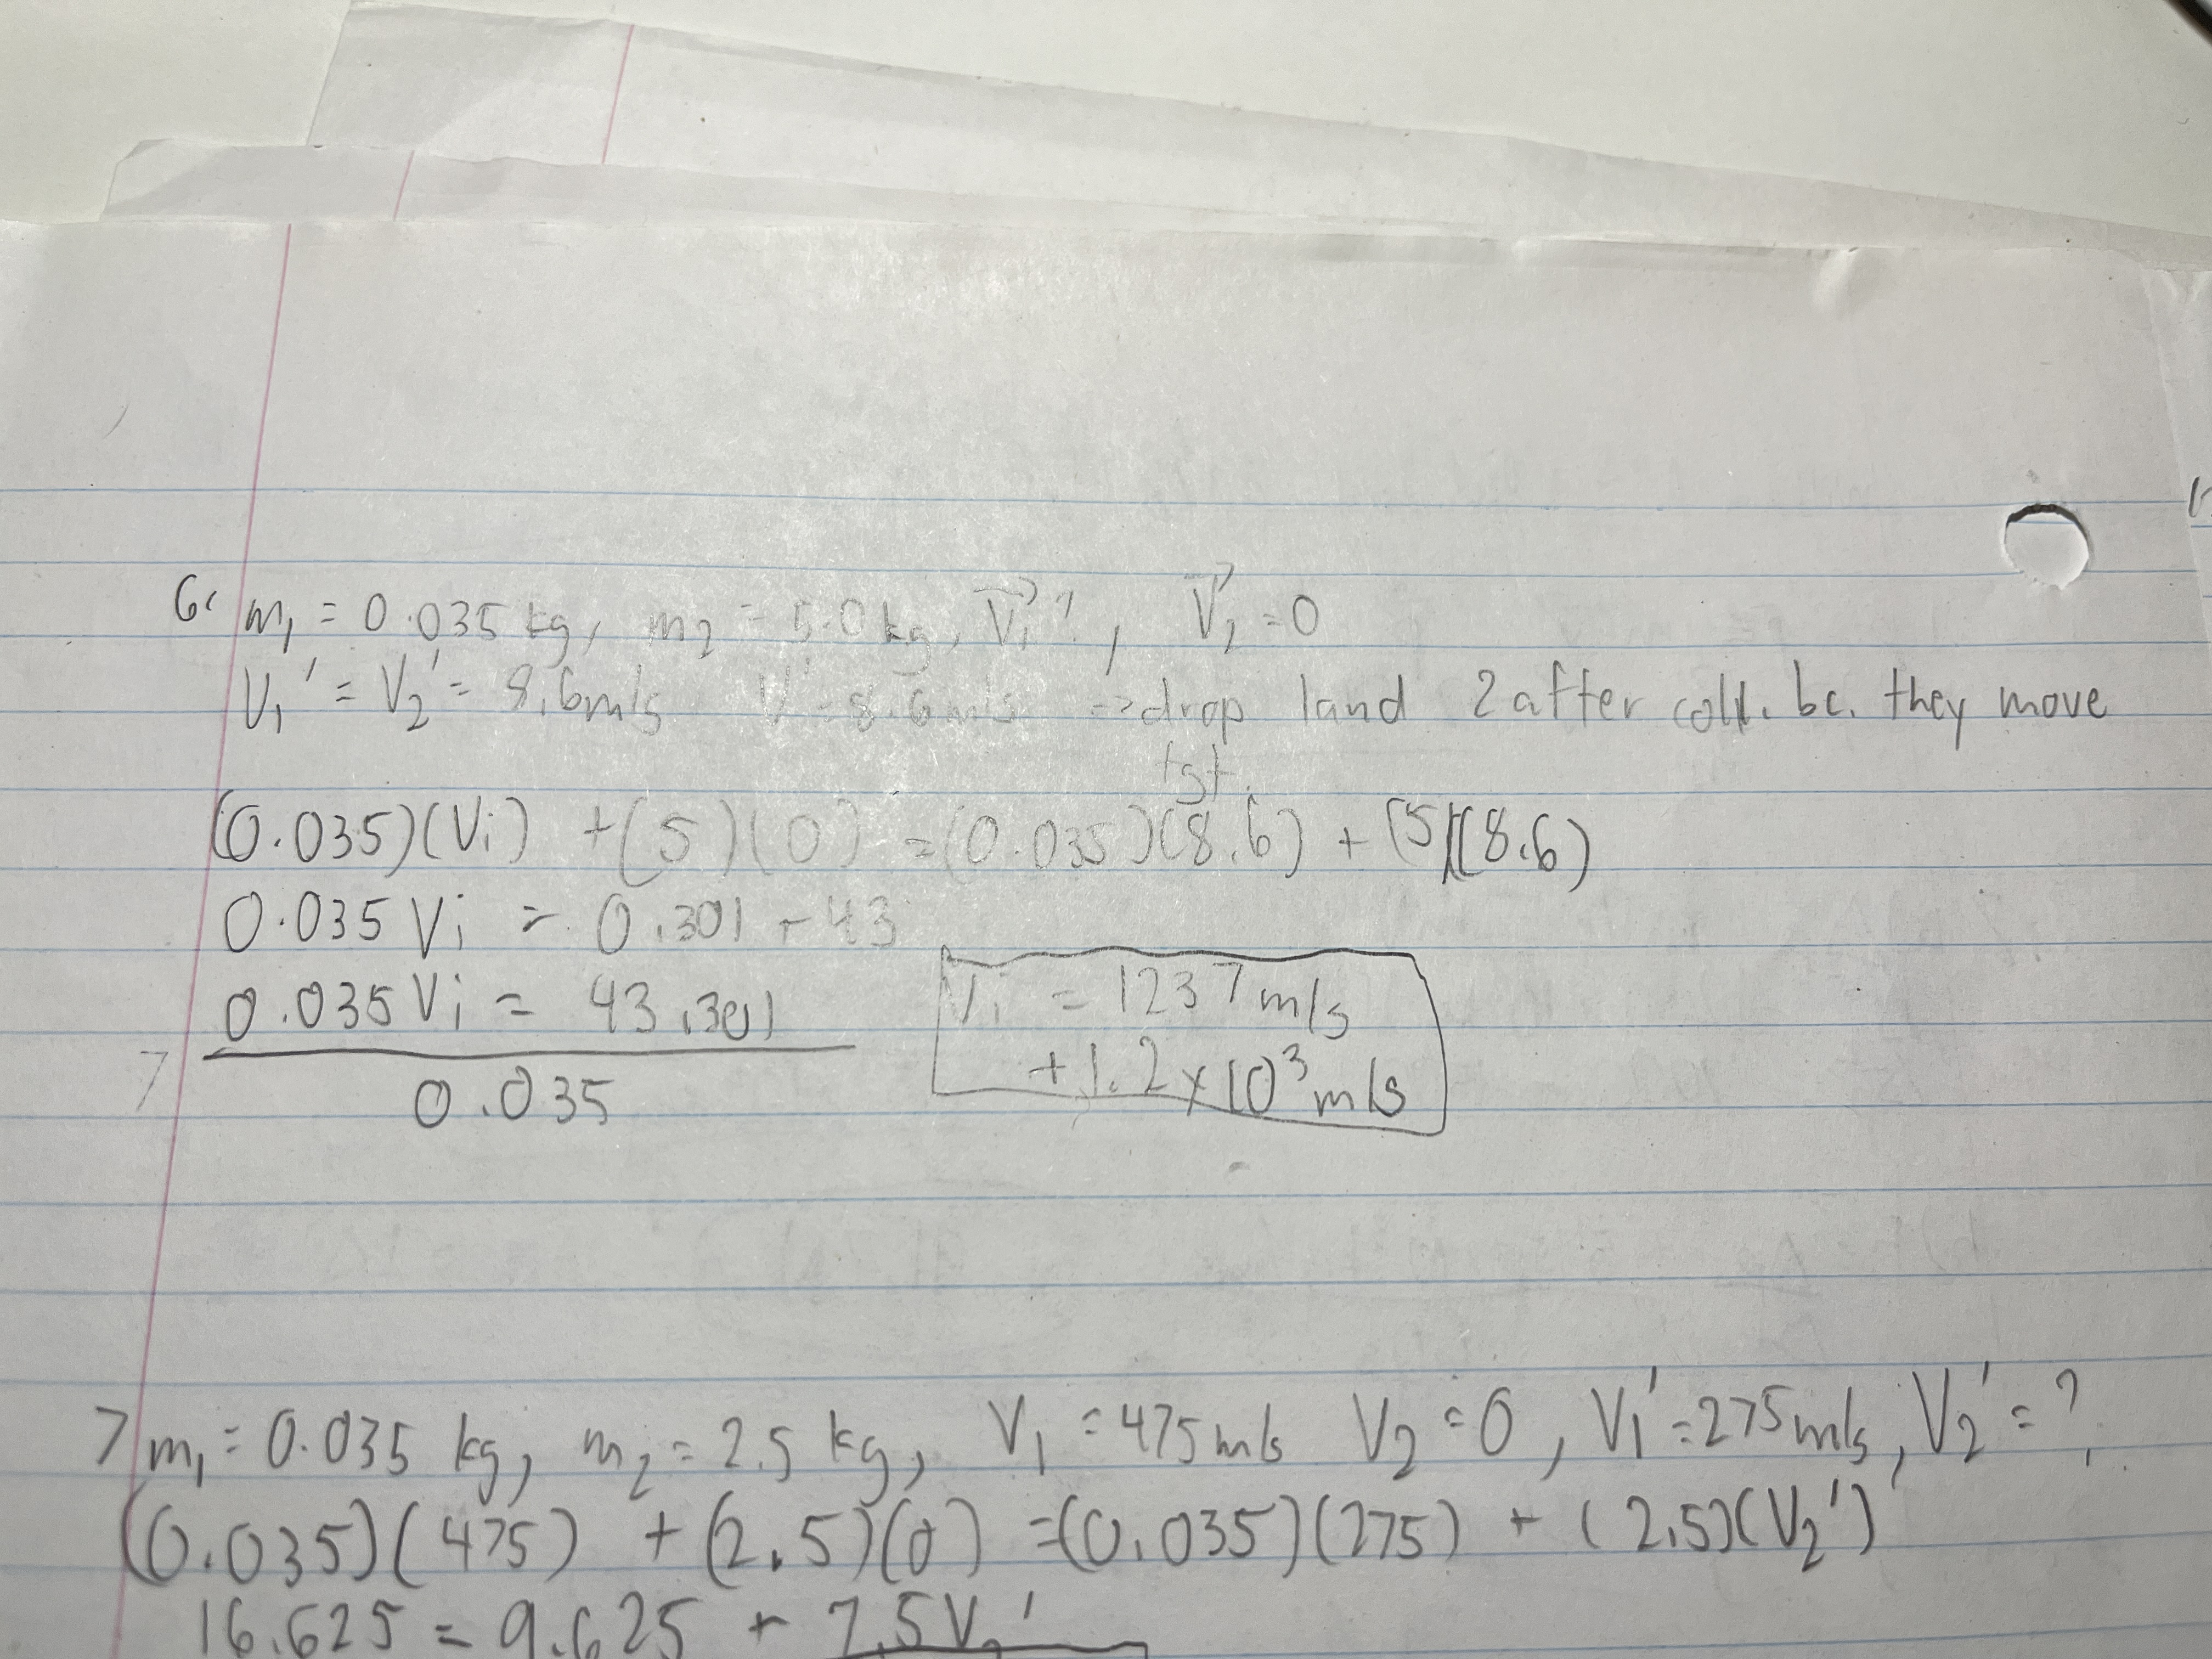 6. m₁ = 0.035 kg, m₂ = 5.0 kg, V⃗₁ ?, V⃗₂ = 0
V₁' = V₂' = 8.6m/s V' = 8.6 m/s => drop 1 and 2 after coll. bc. they move
tgt.
(0.035)(Vi) + (5)(0) = (0.035)(8.6) + (5)(8.6)
0.035 Vi = 0.301 + 43
0.035 Vi = 43.301
0.035
Vi = 1237 m/s
+1.2x10³ m/s
7 m₁ = 0.035 kg, m₂ = 2.5 kg, V₁ = 475 m/s V₂ = 0, V₁' = 275 m/s, V₂' = ?
(0.035)(475) + (2.5)(0) = (0.035)(275) + (2.5)(V₂')
16.625 = 9.625 + 2.5V₂'